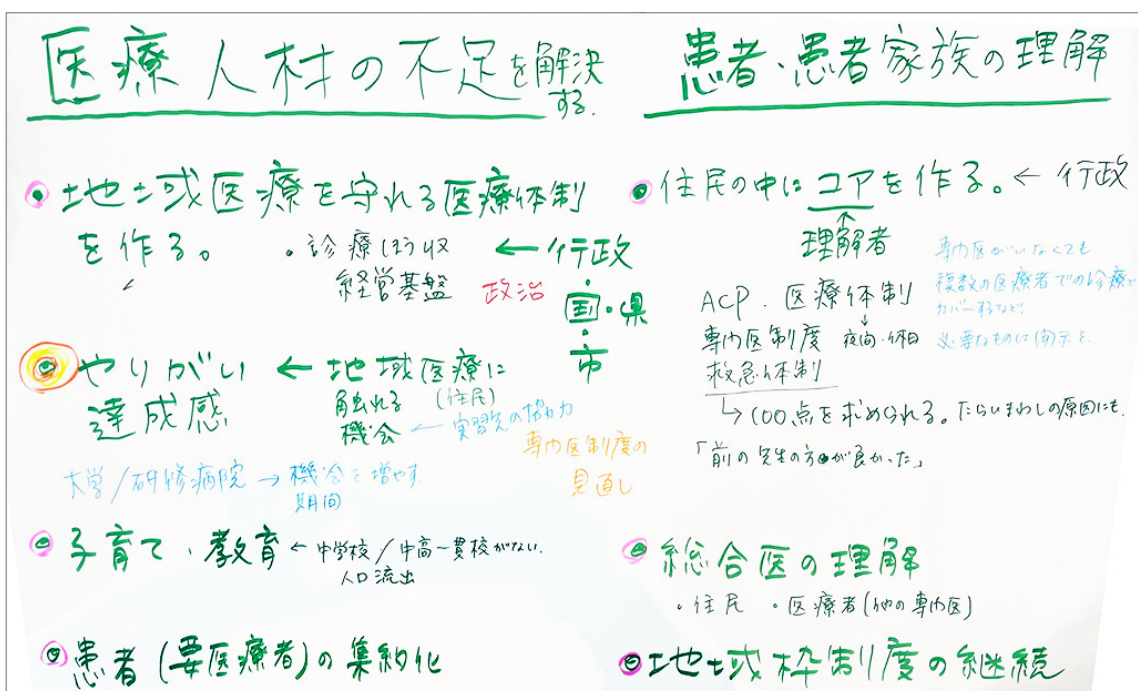 医療人材の不足を解決
する.
地域医療を守れる医療体制
を作る。
・診療ほう収
経営基盤
政治
←行政
国・県
市
やりがい
達成感
← 地域医療に
触れる
(住民)
機会
← 実習先の協力
専門医制度の
見直し
大学/研修病院 → 機会を増やす.
期間
子育て・教育
← 中学校/中高一貫校がない.
人口流出
患者(要医療者)の集約化
患者・患者家族の理解
住民の中にコアを作る。← 行政
↑
理解者
専門医がいなくても
複数の医療者での診療で
カバーするなど.
ACP. 医療体制
↓
専門医制度 夜間・休日
救急体制
↳ 100点を求められる。たらいまわしの原因にも.
「前の先生の方が良かった」
総合医の理解
・住民 ・医療者(他の専門医)
地域枠制度の継続